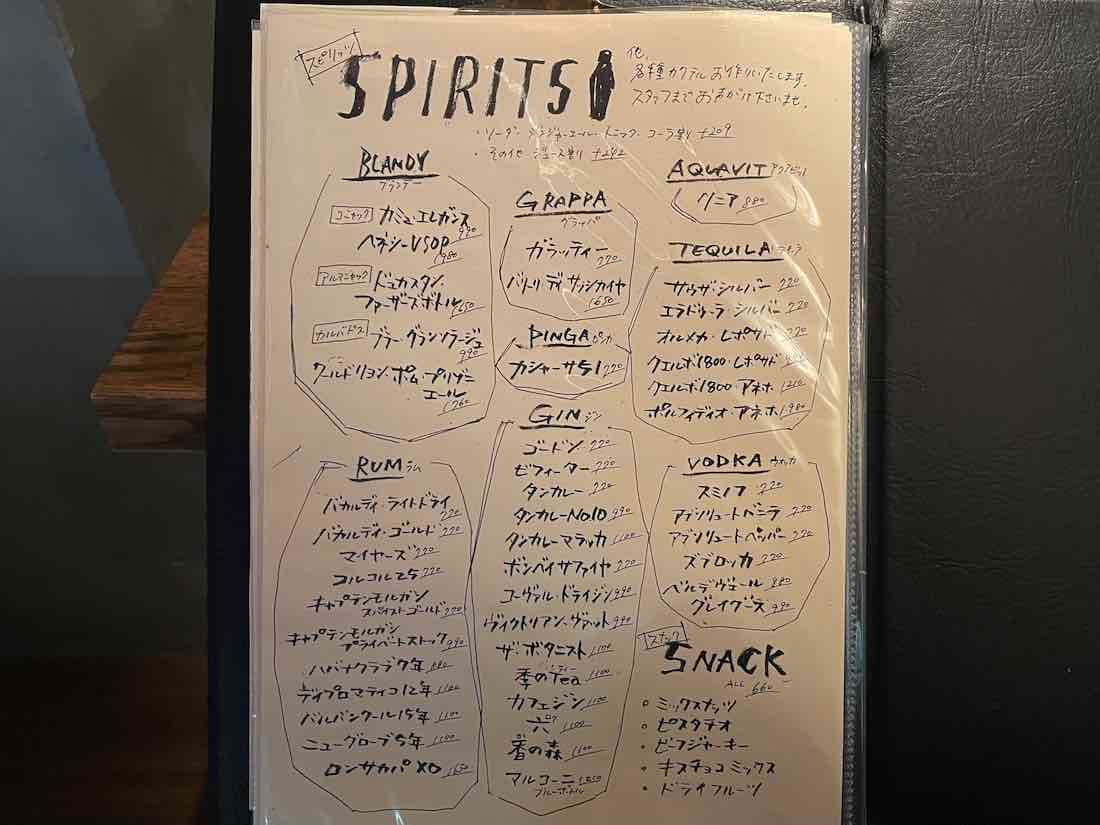 スピリッツ
SPIRITS
他、
各種カクテルお作りいたします。
スタッフまでお声がけ下さいませ。
・ソーダ・ジンジャーエール・トニック・コーラ割り +209
・その他 ジュース割り +242
BLANDY
ブランデー
コニャック カミュ・エレガンス
990
ヘネシーVSOP
1980
アルマニャック ドュカスタン・
ファーザーズボトル
1650
カルバドス ブラー・グランソラージュ
990
クールドリヨン・ポム・プリゾニ
エール
1760
GRAPPA
グラッパ
ガラッティー
770
バローリ・ディ・サッシカイヤ
1650
PINGA ピンガ
カシャーサ51 770
AQUAVIT アクアビット
リニア 880
TEQUILA テキーラ
サウザ・シルバー 770
エラドゥーラ・シルバー 770
オルメカ・レポサド 770
クエルボ1800・レポサド
クエルボ1800・アネホ 1210
ポルフィディオ・アネホ 1980
RUM ラム
バカルディ・ライトドライ
770
バカルディ・ゴールド 770
マイヤーズ 770
コルコル25 770
キャプテンモルガン
スパイストゴールド 770
キャプテンモルガン
プライベートストック 990
ハバナクラブ7年 880
ディプロマティコ12年 1100
バルバンクール15年 1100
ニューグローブ5年 1100
ロンサカパXO 1650
GIN ジン
ゴードン 770
ビフィーター 770
タンカレー 770
タンカレーNo10 990
タンカレーマラッカ 1100
ボンベイサファイヤ 770
コーヴァル・ドライジン 990
ヴィクトリアン・ヴァット 990
ザ・ボタニスト 1100
季のTea 1100
カフェジン 1100
六 1100
香の森 1100
マルコーニ
ブルーボトル
VODKA ウォッカ
スミノフ 770
アブソリュートベニラ 770
アブソリュートペッパー 770
ズブロッカ 770
ベルデヴェール 880
グレイグース 990
スナック
SNACK
ALL 660-
○ ミックスナッツ
○ ピスタチオ
○ ビーフジャーキー
○ キスチョコミックス
○ ドライフルーツ